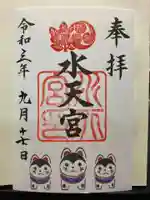 奉拝
水天宮
令和三年九月十七日